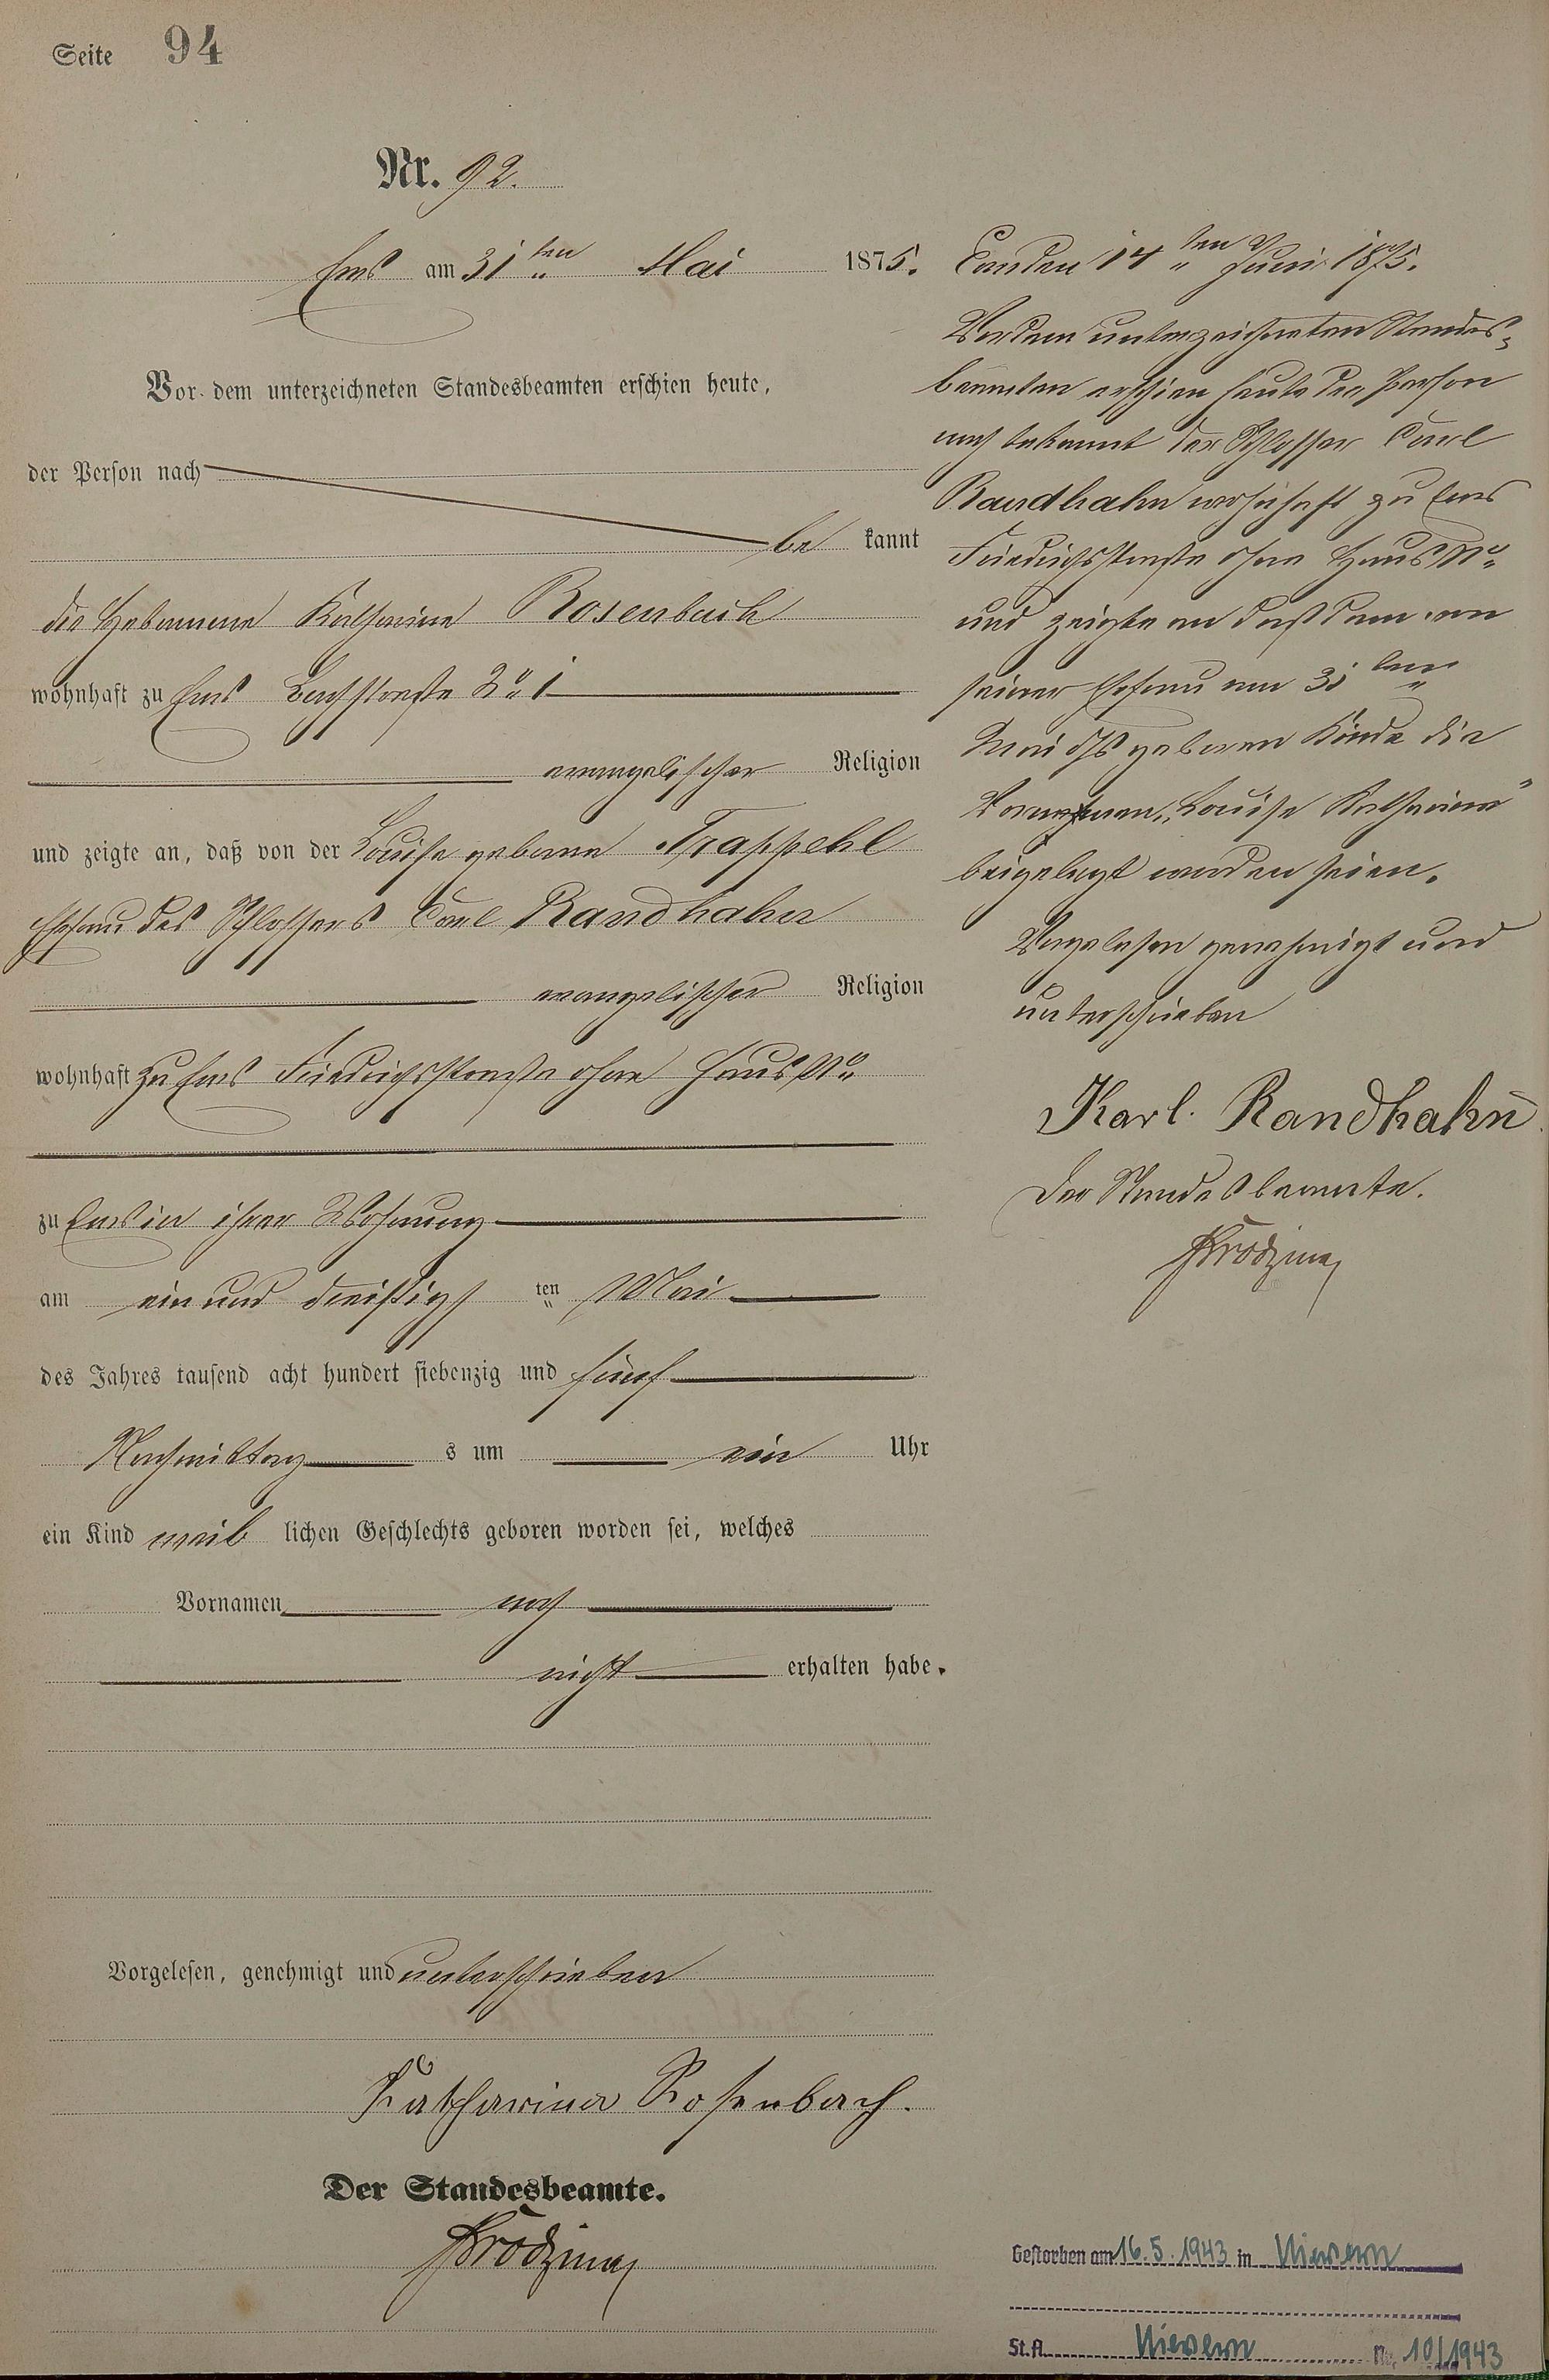 Seite 94
Nr. 92.
Ems am 31ten Mai 1875.
Vor dem unterzeichneten Standesbeamten erschien heute,
der Person nach
be kannt
die Hebamme Katharina Rosenbach
wohnhaft zu Ems Bachstraße No 1
evangelischer Religion
und zeigte an, daß von der Louise geborne Trappehl
Ehefrau des Schlossers Carl Randhahn
evangelischer Religion
wohnhaft zu Ems Friedrichsstraße ohne Haus No
zu Ems in ihrer Wohnung
am ein und dreißigs ten Mai
des Jahres tausend acht hundert siebenzig und fünf
Nachmittag s um ein Uhr
ein Kind weib lichen Geschlechts geboren worden sei, welches
Vornamen noch
nicht erhalten habe.
Vorgelesen, genehmigt und unterschrieben
Katharina Rosenbach.
Der Standesbeamte.
14ten Juni 1875.
Vor dem unterzeichneten Standes-
beamten erschien heute der Person
nach bekannt der Schlosser Carl
Randhahn wohnhaft zu Ems
Friedrichsstraße ohne Haus No
und zeigte an daß dem von
seiner Ehefrau am 31ten
Mai ds geboren Kinde die
Vornamen „Louise Katharina"
beigelegt worden seien.
Vorgelesen genehmigt und
unterschrieben
Karl. Randhahn
Der Standesbeamte.
Gestorben am 16.5.1943 in Nievern
St.A. Nievern Nr. 10/1943